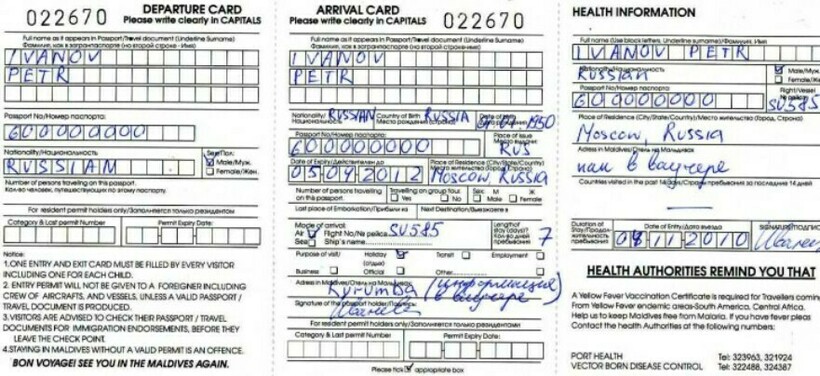 DEPARTURE CARD
Please write clearly in CAPITALS
022670
Full name as it appears in Passport/Travel document (Underline Surname)
Фамилия, как в загранпаспорте (на второй строке - Имя)
IVANOV
PETR
Passport No/Номер паспорта:
600000000
Nationality/Национальность
RUSSIAN
Sex/Пол:
Male/Муж.
Female/Жен.
Number of persons travelling on this passport.
Кол-во человек, путешествующих по этому паспорту
For resident permit holders only/Заполняется только резидентом
Category & Last permit Number
Permit Expiry Date:
Notice:
1.ONE ENTRY AND EXIT CARD MUST BE FILLED BY EVERY VISITOR
INCLUDING ONE FOR EACH CHILD.
2. ENTRY PERMIT WILL NOT BE GIVEN TO A FOREIGNER INCLUDING
CREW OF AIRCRAFTS, AND VESSELS, UNLESS A VALID PASSPORT /
TRAVEL DOCUMENT IS PRODUCED.
3.VISITORS ARE ADVISED TO CHECK THEIR PASSPORT / TRAVEL
DOCUMENTS FOR IMMIGRATION ENDORSEMENTS, BEFORE THEY
LEAVE THE CHECK POINT.
4.STAYING IN MALDIVES WITHOUT A VALID PERMIT IS AN OFFENCE.
BON VOYAGE! SEE YOU IN THE MALDIVES AGAIN.
ARRIVAL CARD
Please write clearly in CAPITALS
022670
Full name as it appears in Passport/Travel document (Underline Surname)
Фамилия, как в загранпаспорте (на второй строке - Имя)
IVANOV
PETR
Nationality/
Национальность
RUSSIAN
Country of Birth
Место рождения (страна)
RUSSIA
1950
Passport No/Номер паспорта:
60000000
Place of Issue
RUS
Date of Expiry/Действителен до
05 04 2012
Place of Residence (City/State/Country)
Moscow RUSSIA
Number of persons travelling
on this passport.
Travelling on group tour
Yes
No
Sex: М Ж
Male
Female
Last place of Embarkation/Прибыли из
Next Destination/Выезжаете в
Mode of arrival:
Air
Flight No/№ рейса
SU585
Sea
Ship's name
Length of
stay (days)
кол-во дней
пребывания
7
Purpose of visit/
Holiday
(отдых)
Transit
Employment
Business
Official
Other
Adress in Maldives/Отель на Мальдивах
Kurumba (информация
в ваучере)
Signature of the passport holder/
For resident permit holders only/Заполняется только резидентами
Category & Last permit Number
Permit Expiry Date:
Please tick appropriate box
HEALTH INFORMATION
Full name (Use block letters, Underline surname)/Фамилия, Имя
IVANOV PETR
Nationality/Национальность
Russian
Male/Муж.
Female/Жен
Passport No/Номер паспорта:
600000000
Flight/Vessel
№ рейса
SU585
Place of Residence (City/State/Country)/Место жительства (Город, Страна)
Moscow, Russia
Adress in Maldives/Отель на Мальдивах
как в ваучере
Countries visited in the past 14 days/Страны пребывания за последние 14 дней
Duration of
Stay/Продол-
жительность
пребывания
Date of Entry/Дата въезда
08 11 2010
SIGNATURE/ПОДПИСЬ
HEALTH AUTHORITIES REMIND YOU THAT
A Yellow Fever Vaccination Certificate is required for Travellers coming
From Yellow Fever endemic areas-South America, Central Africa.
Help us to keep Maldives free from Malaria. If you have fever pleas
Contact the health Authorities at the following numbers:
PORT HEALTH Tel: 323963, 321924
VECTOR BORN DISEASE CONTROL Tel: 322488, 324387